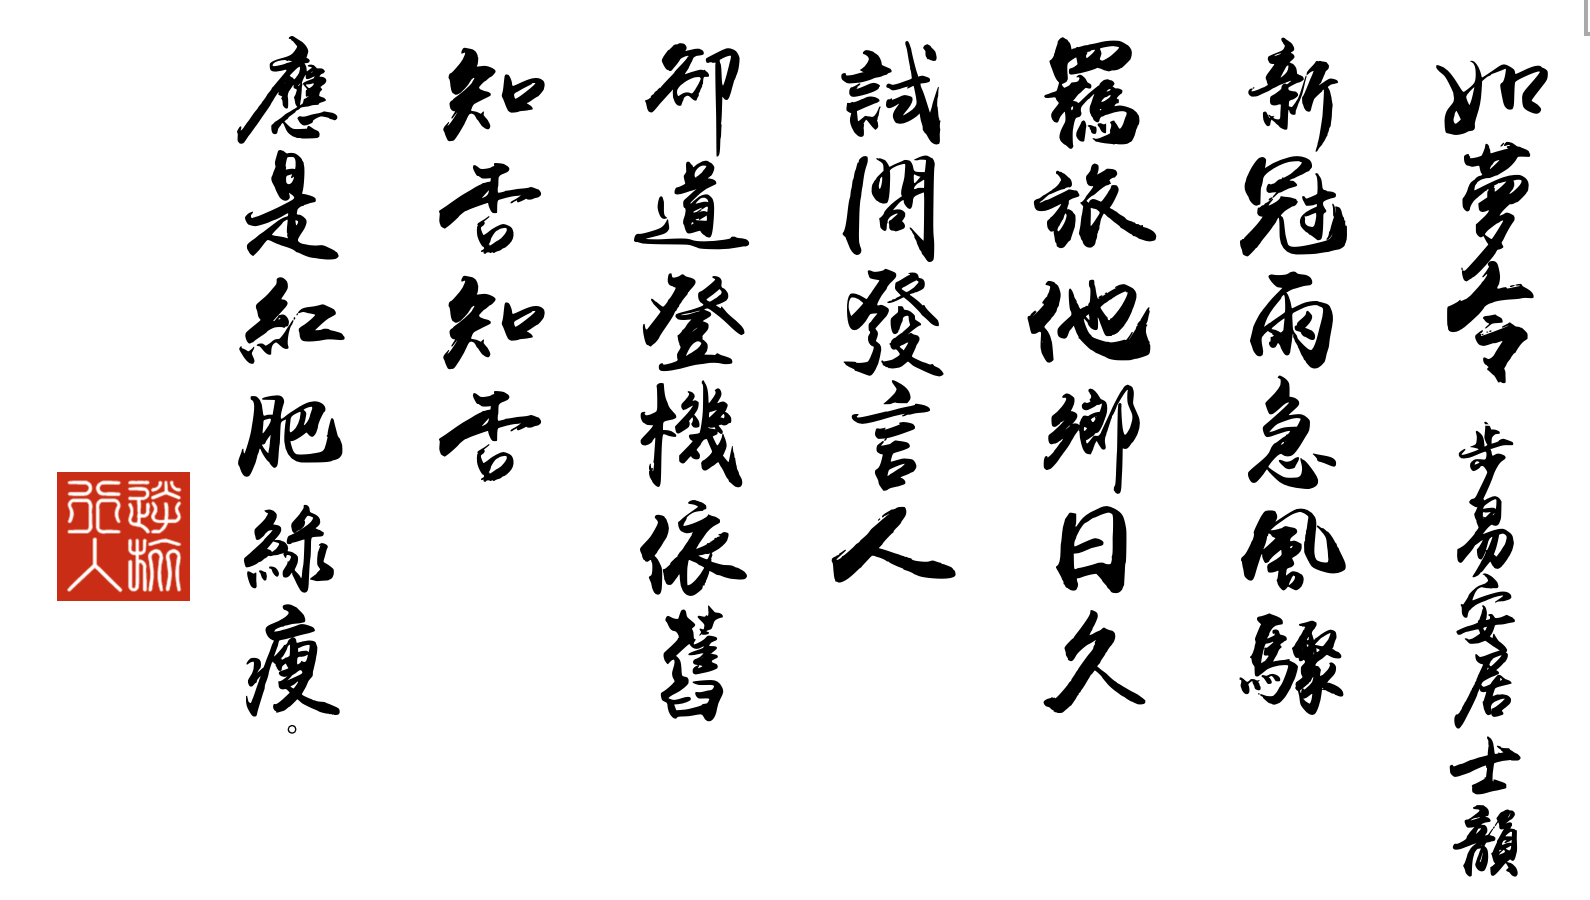 如夢令 步易安居士韻
新冠雨急風驟
羈旅他鄉日久
試問發言人
卻道登機依舊
知否知否
應是紅肥綠瘦。